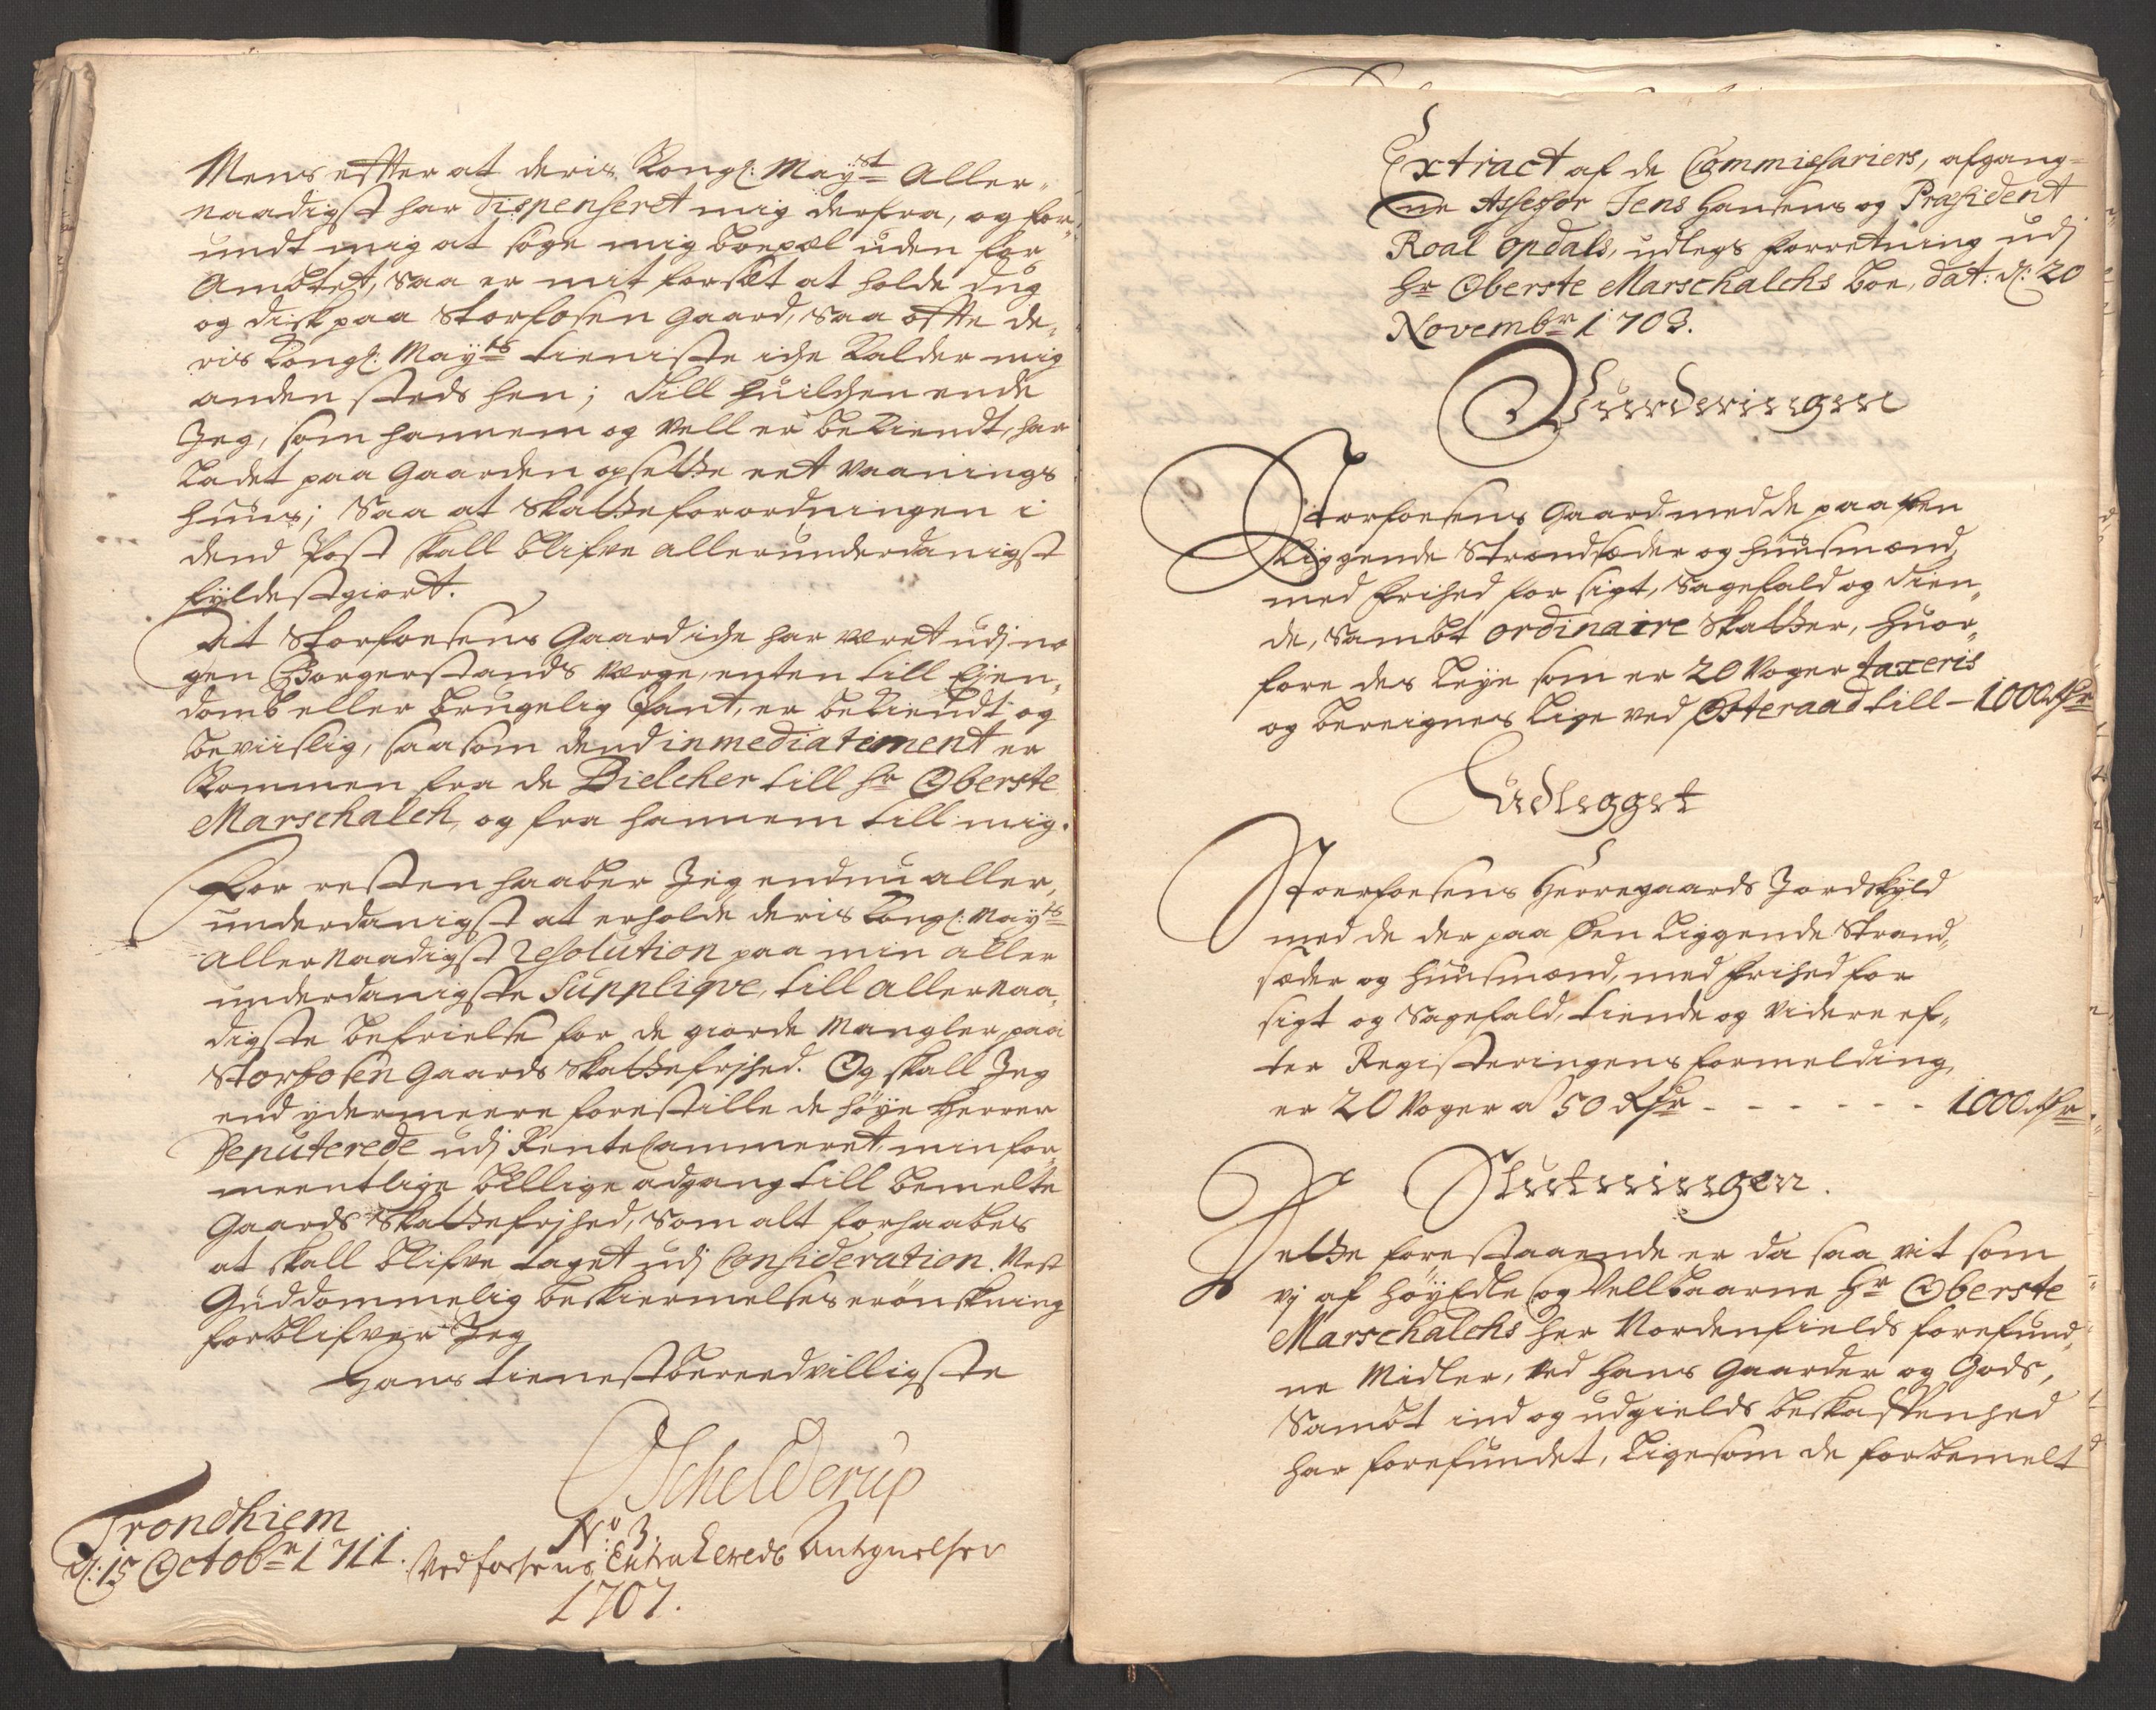 Mens efter at deris Kongl: Mayst Aller-
naadigst har dispenseret mig derfra, og for-
undt mig at søge mig boepæl uden for
Ambtet, Saa er mit forsæt at holde dug
og disk paa Storfosen Gaard, Saa ofte de-
ris Kongl: Mayts tieniste icke kalder mig
anden steds hen; Till huilcken ende
Jeg, som hannem og vell er bekiendt, har
Ladet paa Gaarden opsette eet vaanings
huus; Saa at Skatteforordningen i
dend Post skall blifve allerunderdanigst
fyldestgiort.
At Storfoesens Gaard icke har været udj no
gen Borgerstands værge, enten till Eijen-
domb eller brugelig Pant, er bekiendt og
beviislig, saasom dend inmediatement er
Kommen fra de Bielcher till Hr Oberste
Marschalch, og fra hannem till mig.
For resten haaber Jeg endnu aller-
underdanigst at erholde deris Kongl: Mayts
allernaadigst resolution paa min aller
underdanigste Supplique, till allernaa-
digste befrielse for de giorde Mangler paa
Storfosen Gaards Skattefrjhed. Og skall Jeg
end ydermeere forestille de høye Herrer
Deputerede udj RenteCammeret, min for-
meentlige billige adgang till bemelte
Gaards Skattefrjhed, som alt forhaabes
at skall blifve taget udj Consideration. Nest
Guddommelig beskiermelses erønskning
forblifver Jeg
Hans tienestbereedvilligste
Schelderup
Trondhiem
d: 15 Octobr 1711.
No 3.
Ved fosens Extra Skreds Antegnelser
1707.
Extract af de Commissariers, afgang-
ne Assessor Jens Hansens og Præsident
Roal Opdals, udlegs forretning udj
Hr Oberste Marschalchs boe, dat: d: 20
Novembr 1703.
Vurderingen
Storfoesens Gaard med de paa Øen
Liggende Strandsæder og huusmænd,
med frihed for sigt, Sagefald og Tien-
de, Sambt ordinaire Skatter, huor-
fore des Leye som er 20 Voger taxeris
og beregnes lige ved Østeraad till – 1000 Rdr
Udlegget
Storfoesens Herregaards Jordskyld
med de der paa Øen Liggende Strand-
sæder og huusmænd, med frihed for
sigt og Sagefald, tiende og videre ef-
ter Registeringens formelding,
er 20 Voger a 50 Rdr - - - - - - 1000 Rdr
Slutningen.
Dette forestaaende er da saa vit som
vj af HøyEdle og Vellbaarne Hr Oberste
Marschalchs her Nordenfields forefund-
ne Midler, ved hans Gaarder og Gods,
Sambt ind og udgields beskaffenhed
har forefundet, Ligesom de forbemelt